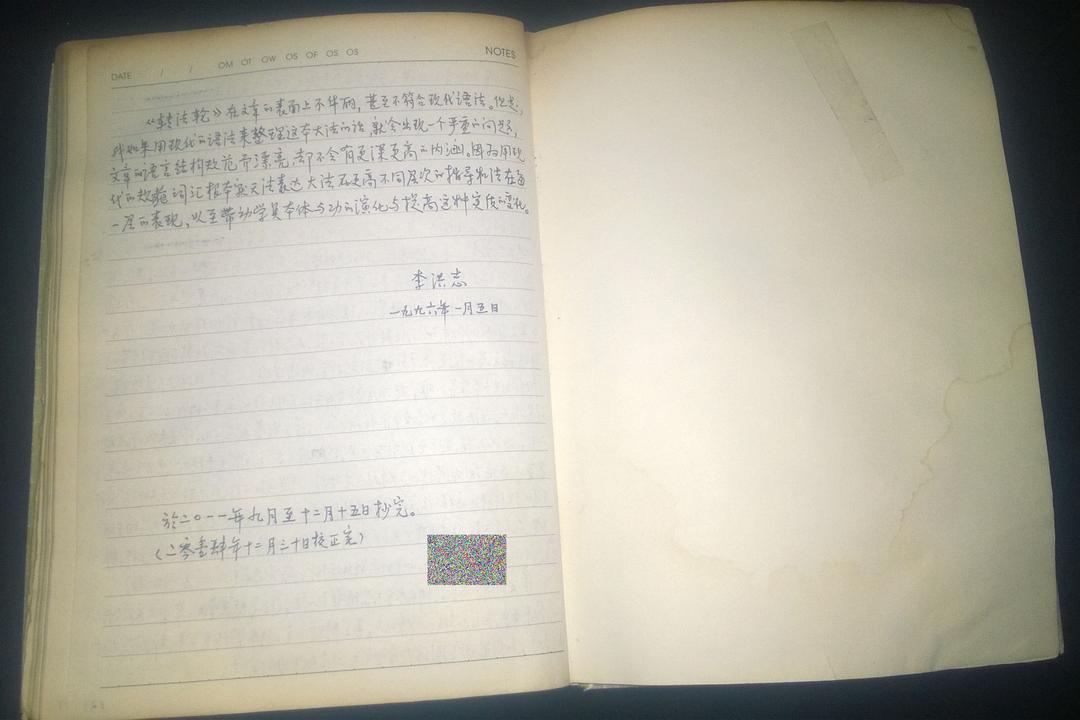 DATE / / OM OT OW OS OF OS OS NOTES
《转法轮》在文章的表面上不华丽,甚至不符合现代语法。但是,
我如果用现代的语法来整理这本大法的话,就会出现一个严重的问题,
文章的语言结构规范而漂亮,却不会有更深更高的内涵。因为用现
代的规范词汇根本就无法表达大法不同更高层次的指导和法在每
一层的表现,以至带动学员本体与功的演化与提高这种实质的变化。
李洪志
一九九六年一月五日
於二〇一一年九月至十二月十五日抄完。
(二零壹肆年十二月三十日校正完)